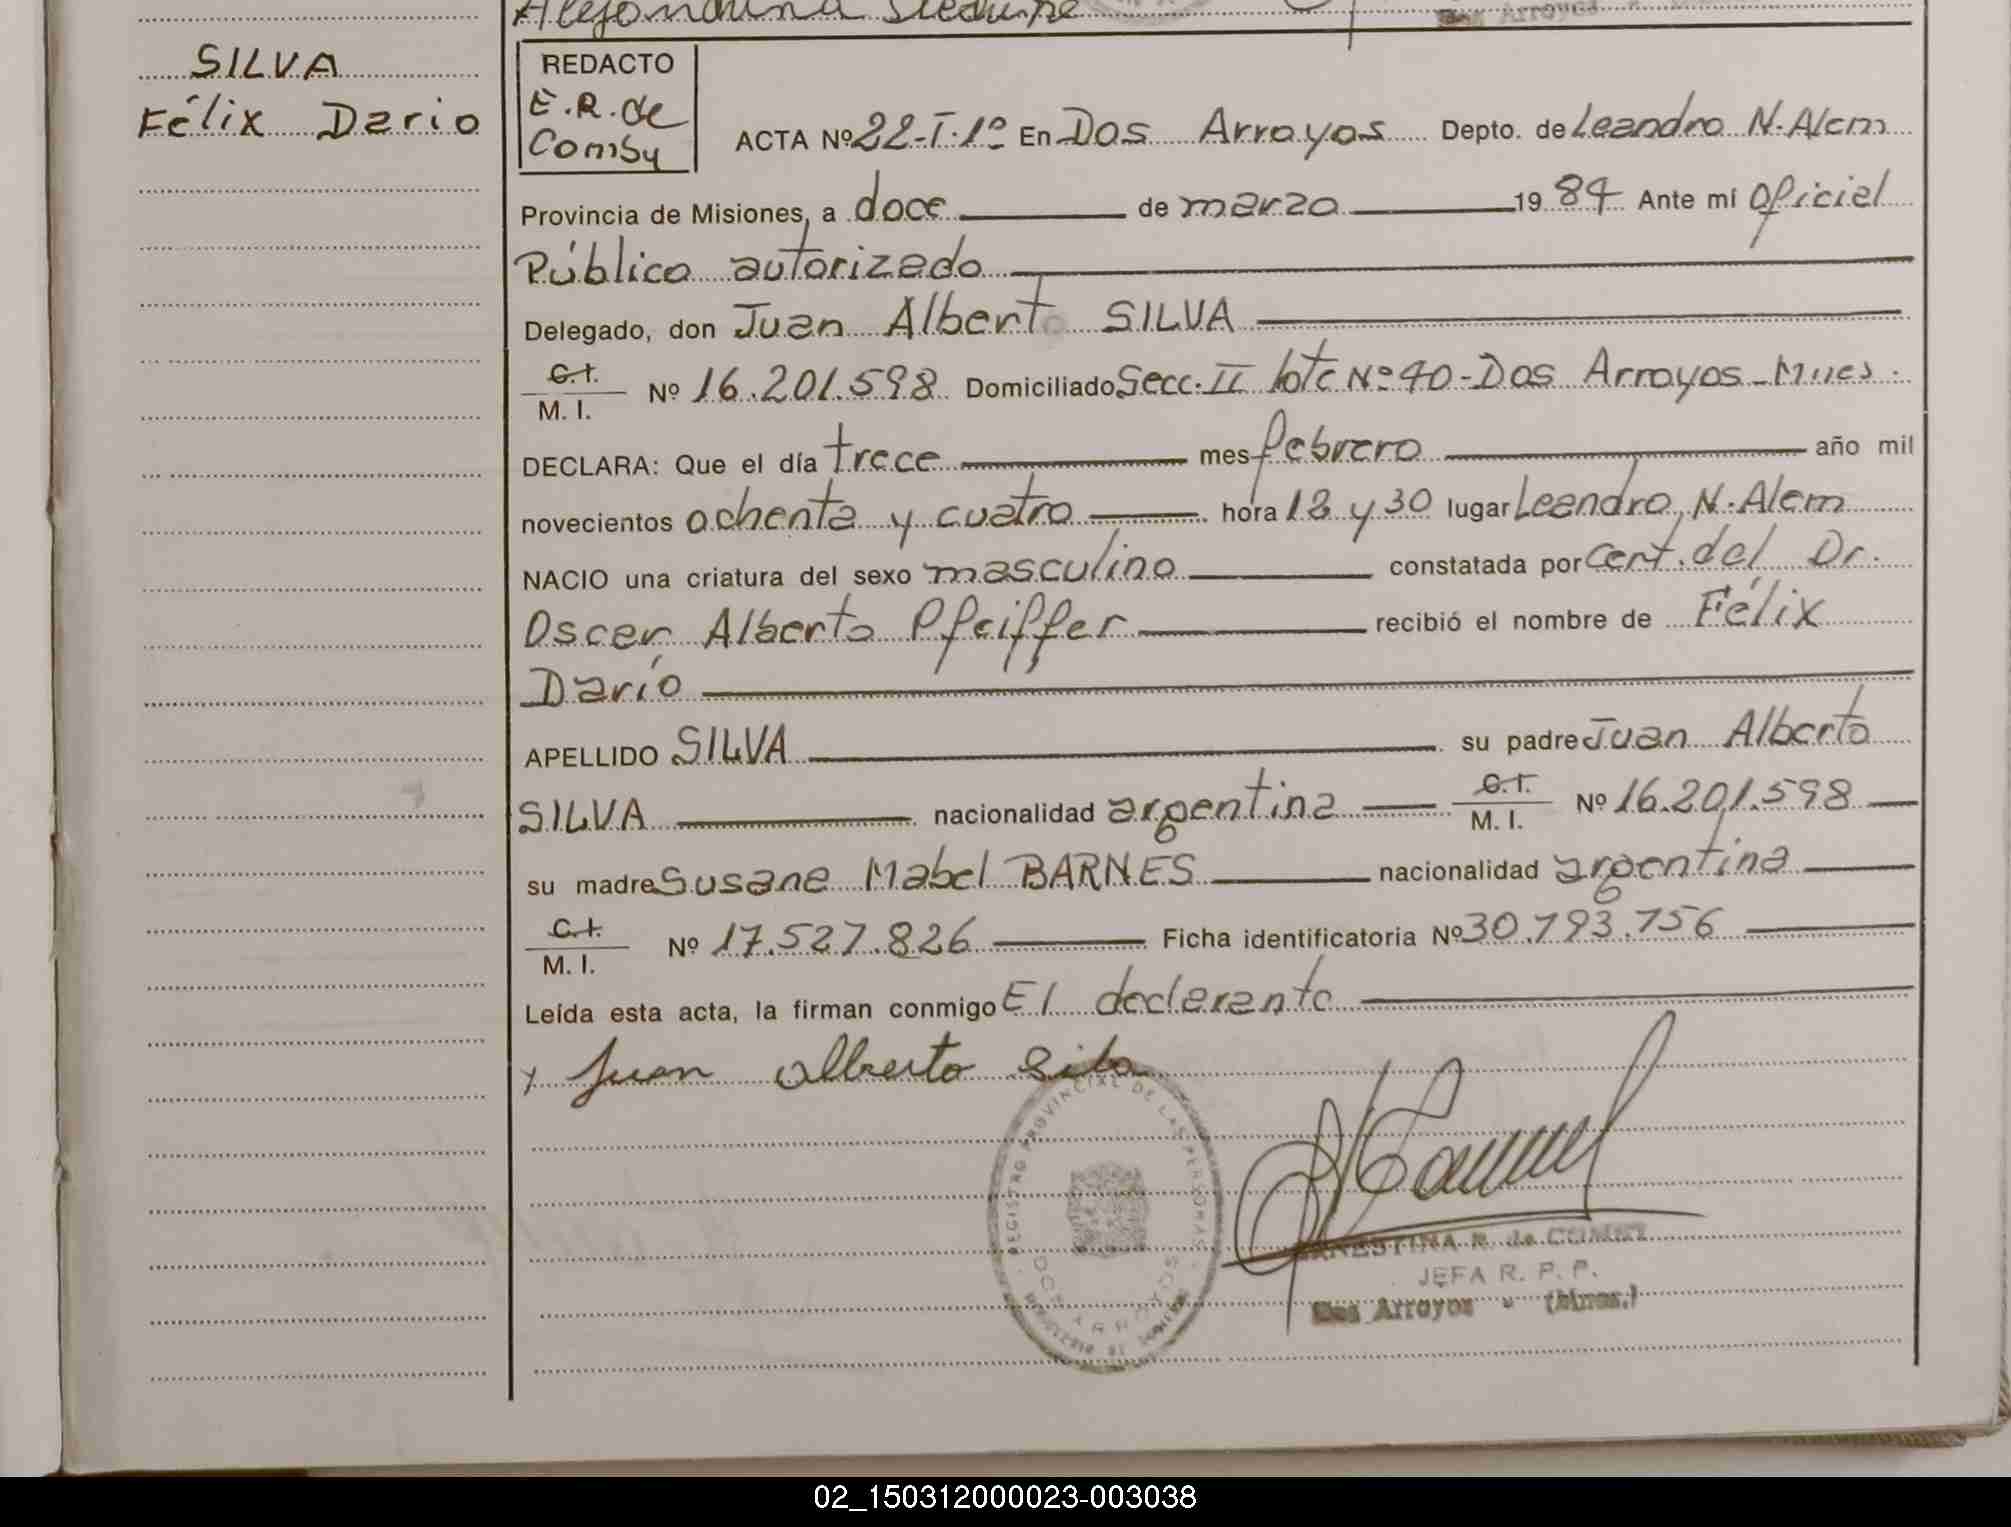 SILVA
Félix Dario
REDACTO
E.R. de
Comby
ACTA Nº 22-I-1º En Dos Arroyos Depto. de Leandro N. Alem
Provincia de Misiones, a doce de marzo 1984 Ante mí Oficial
Público autorizado
Delegado, don Juan Alberto SILVA
C.I.
M. I. Nº 16.201.598 Domiciliado Secc. II lote Nº 40-Dos Arroyos-Mnes.
DECLARA: Que el día trece mes febrero año mil
novecientos ochenta y cuatro hora 12 y 30 lugar Leandro N. Alem
NACIO una criatura del sexo masculino constatada por Cert. del Dr.
Oscar Alberto Pfeiffer recibió el nombre de Félix
Darío
APELLIDO SILVA su padre Juan Alberto
SILVA nacionalidad argentina C.I. M. I. Nº 16.201.598
su madre Susana Mabel BARNES nacionalidad argentina
C.I.
M. I. Nº 17.527.826 Ficha identificatoria Nº 30.793.756
Leída esta acta, la firman conmigo El declarante
x Juan Alberto Silva
REGISTRO PROVINCIAL DE LAS PERSONAS
DOS ARROYOS
ERNESTINA R. de COMBY
JEFA R. P. P.
Dos Arroyos - (Mnes.)
02_150312000023-003038